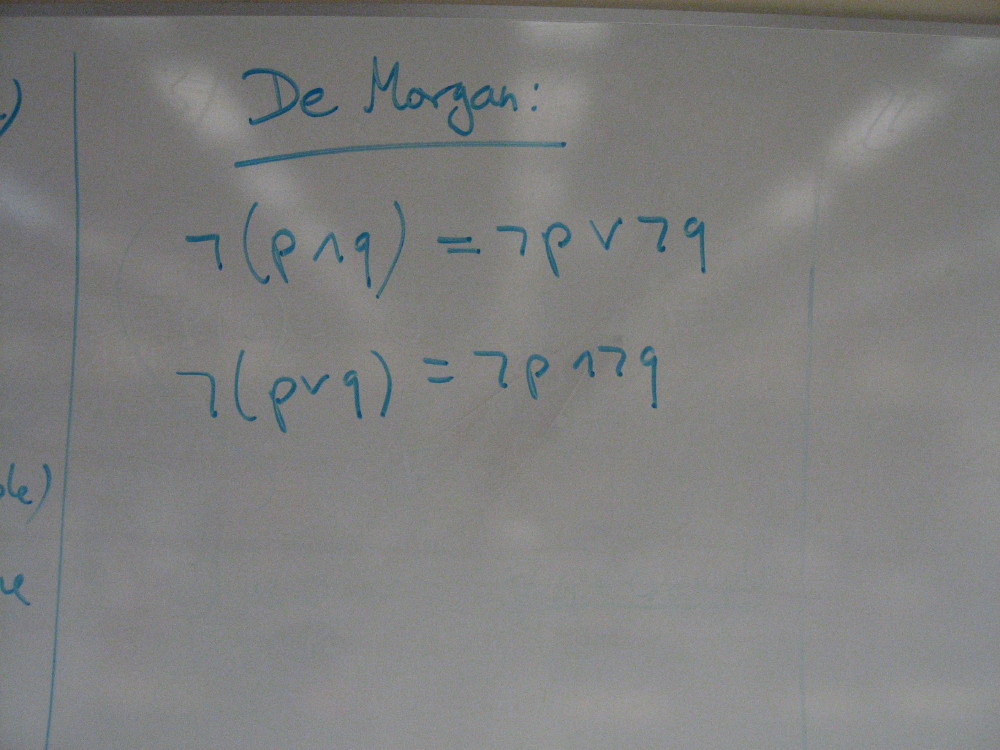 De Morgan:
¬(p∧q) = ¬p∨¬q
¬(p∨q) = ¬p∧¬q
)